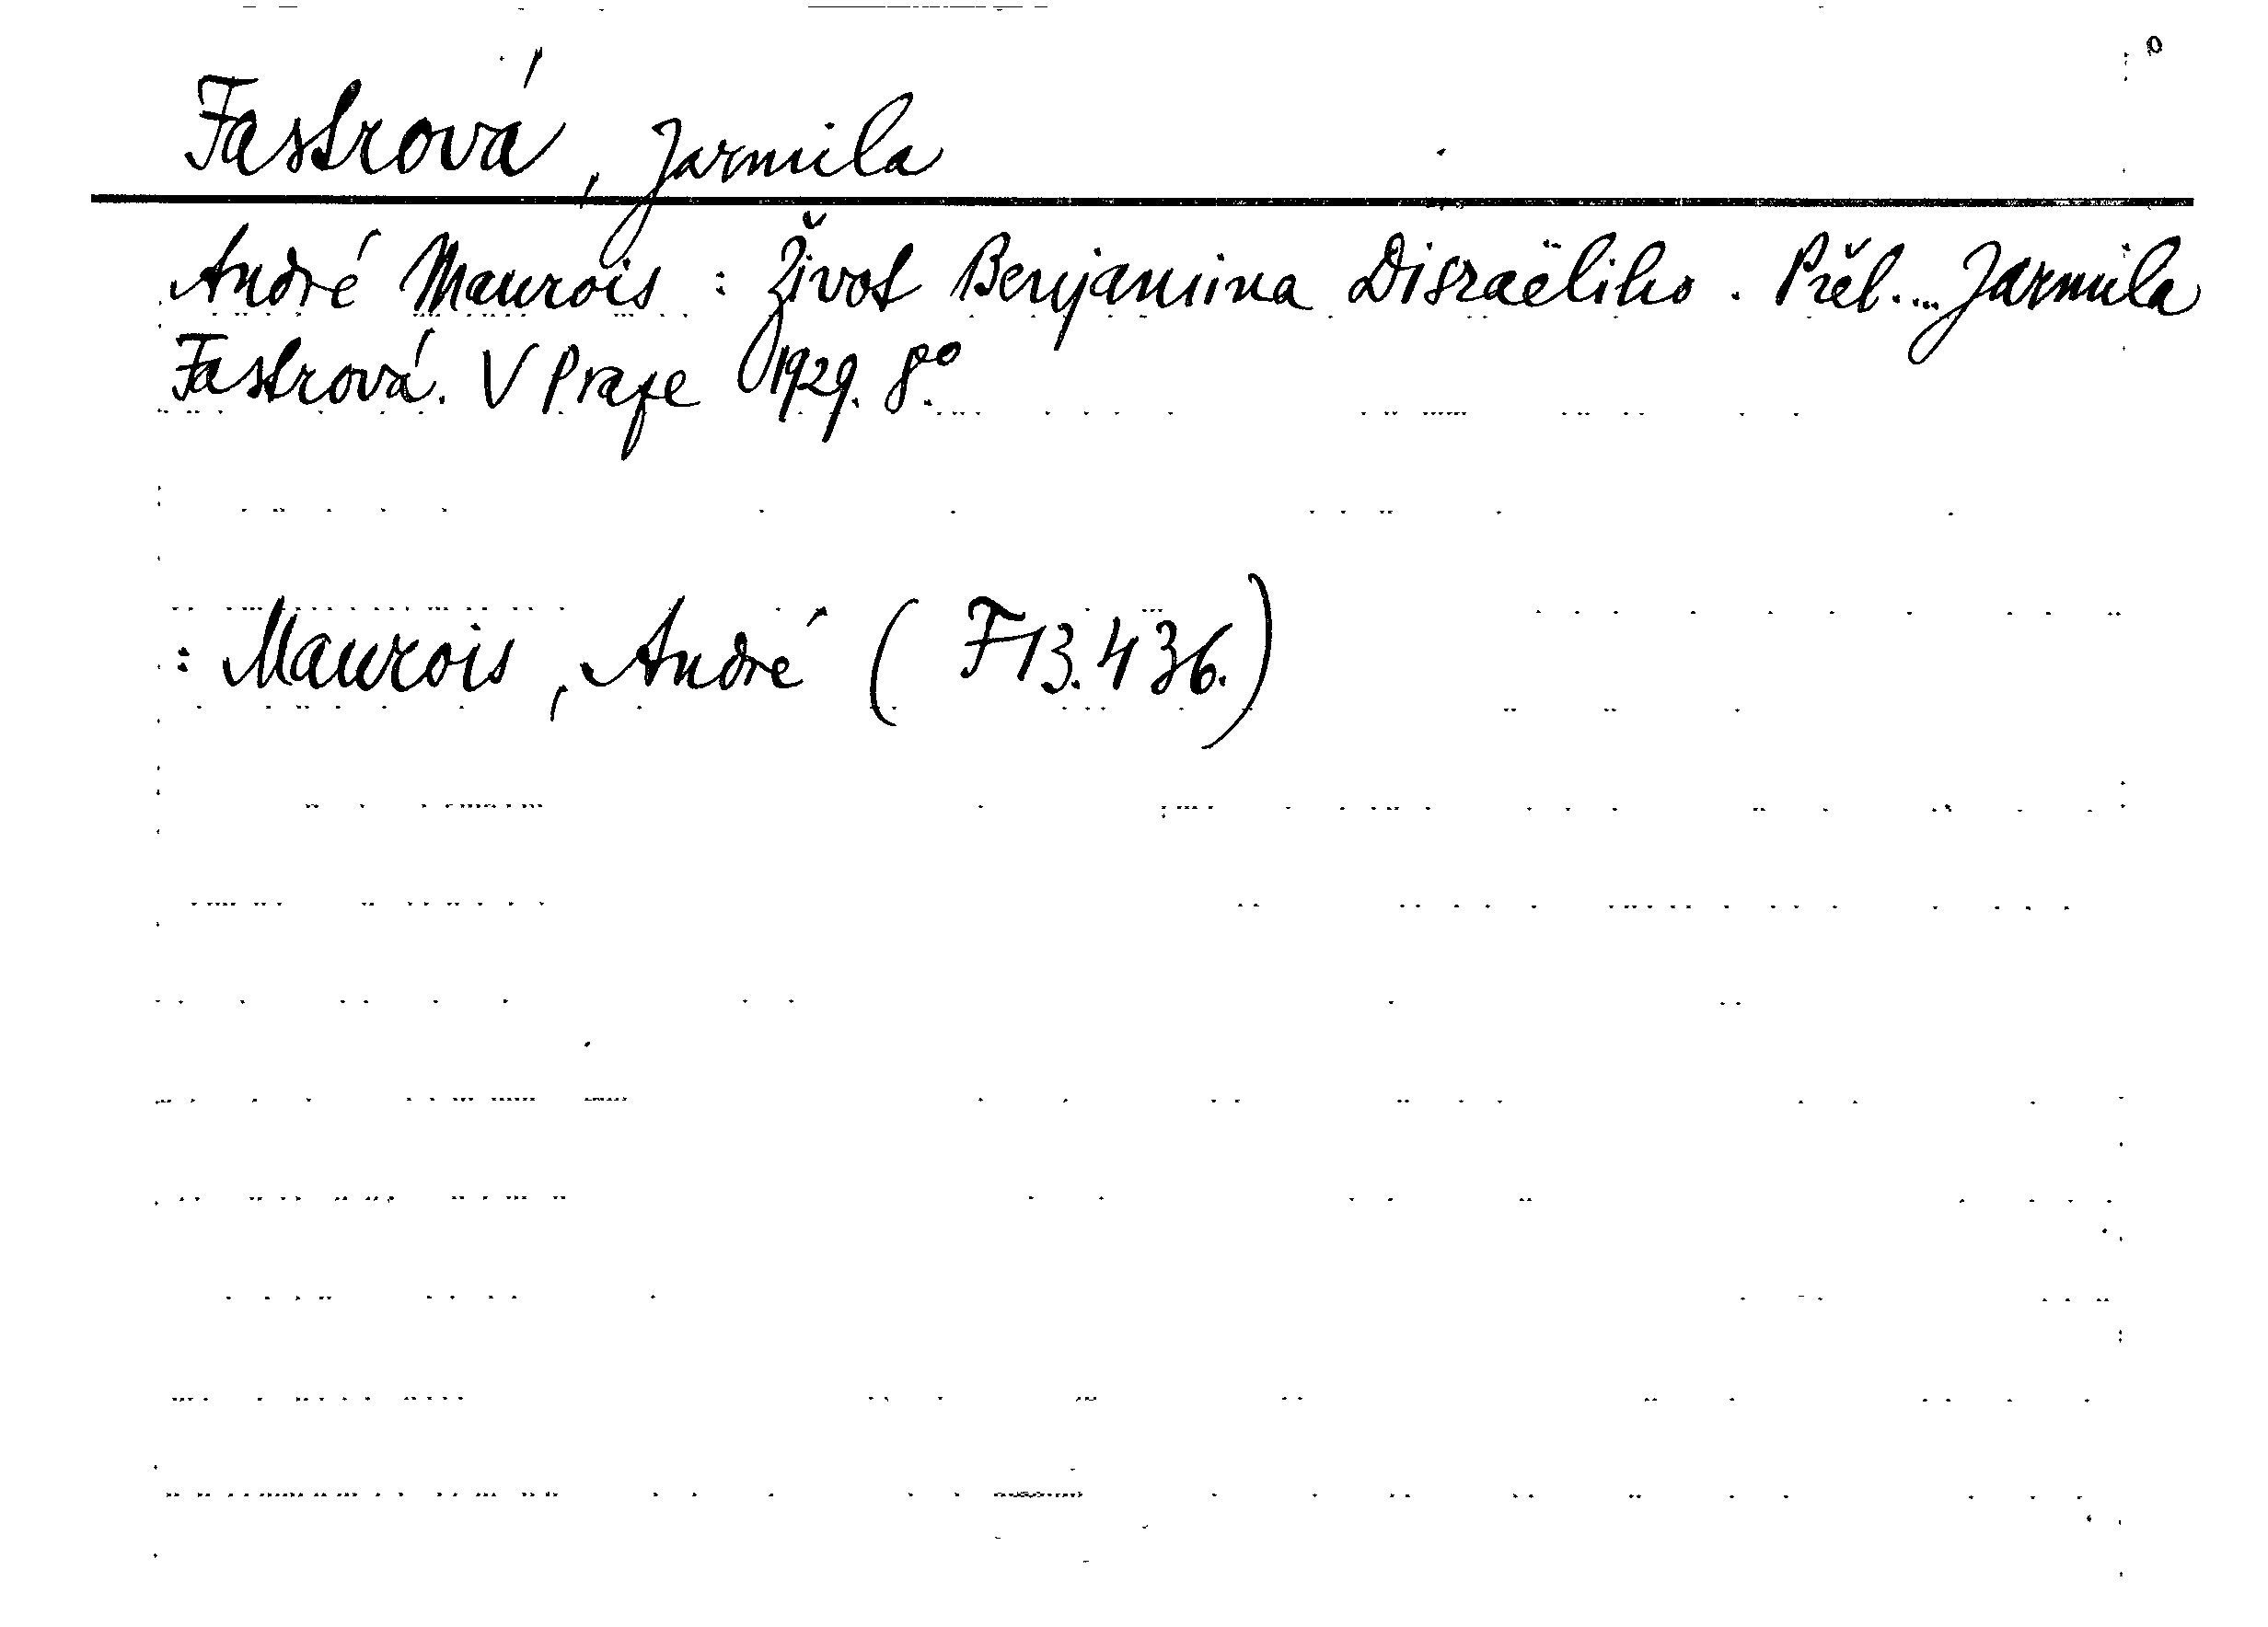 Fastrová, Jarmila
André Maurois : Život Benjamina Disraëliho. Přel.... Jarmila
Fastrová. V Praze 1929. 8°.
: Maurois, André (F13.436.)